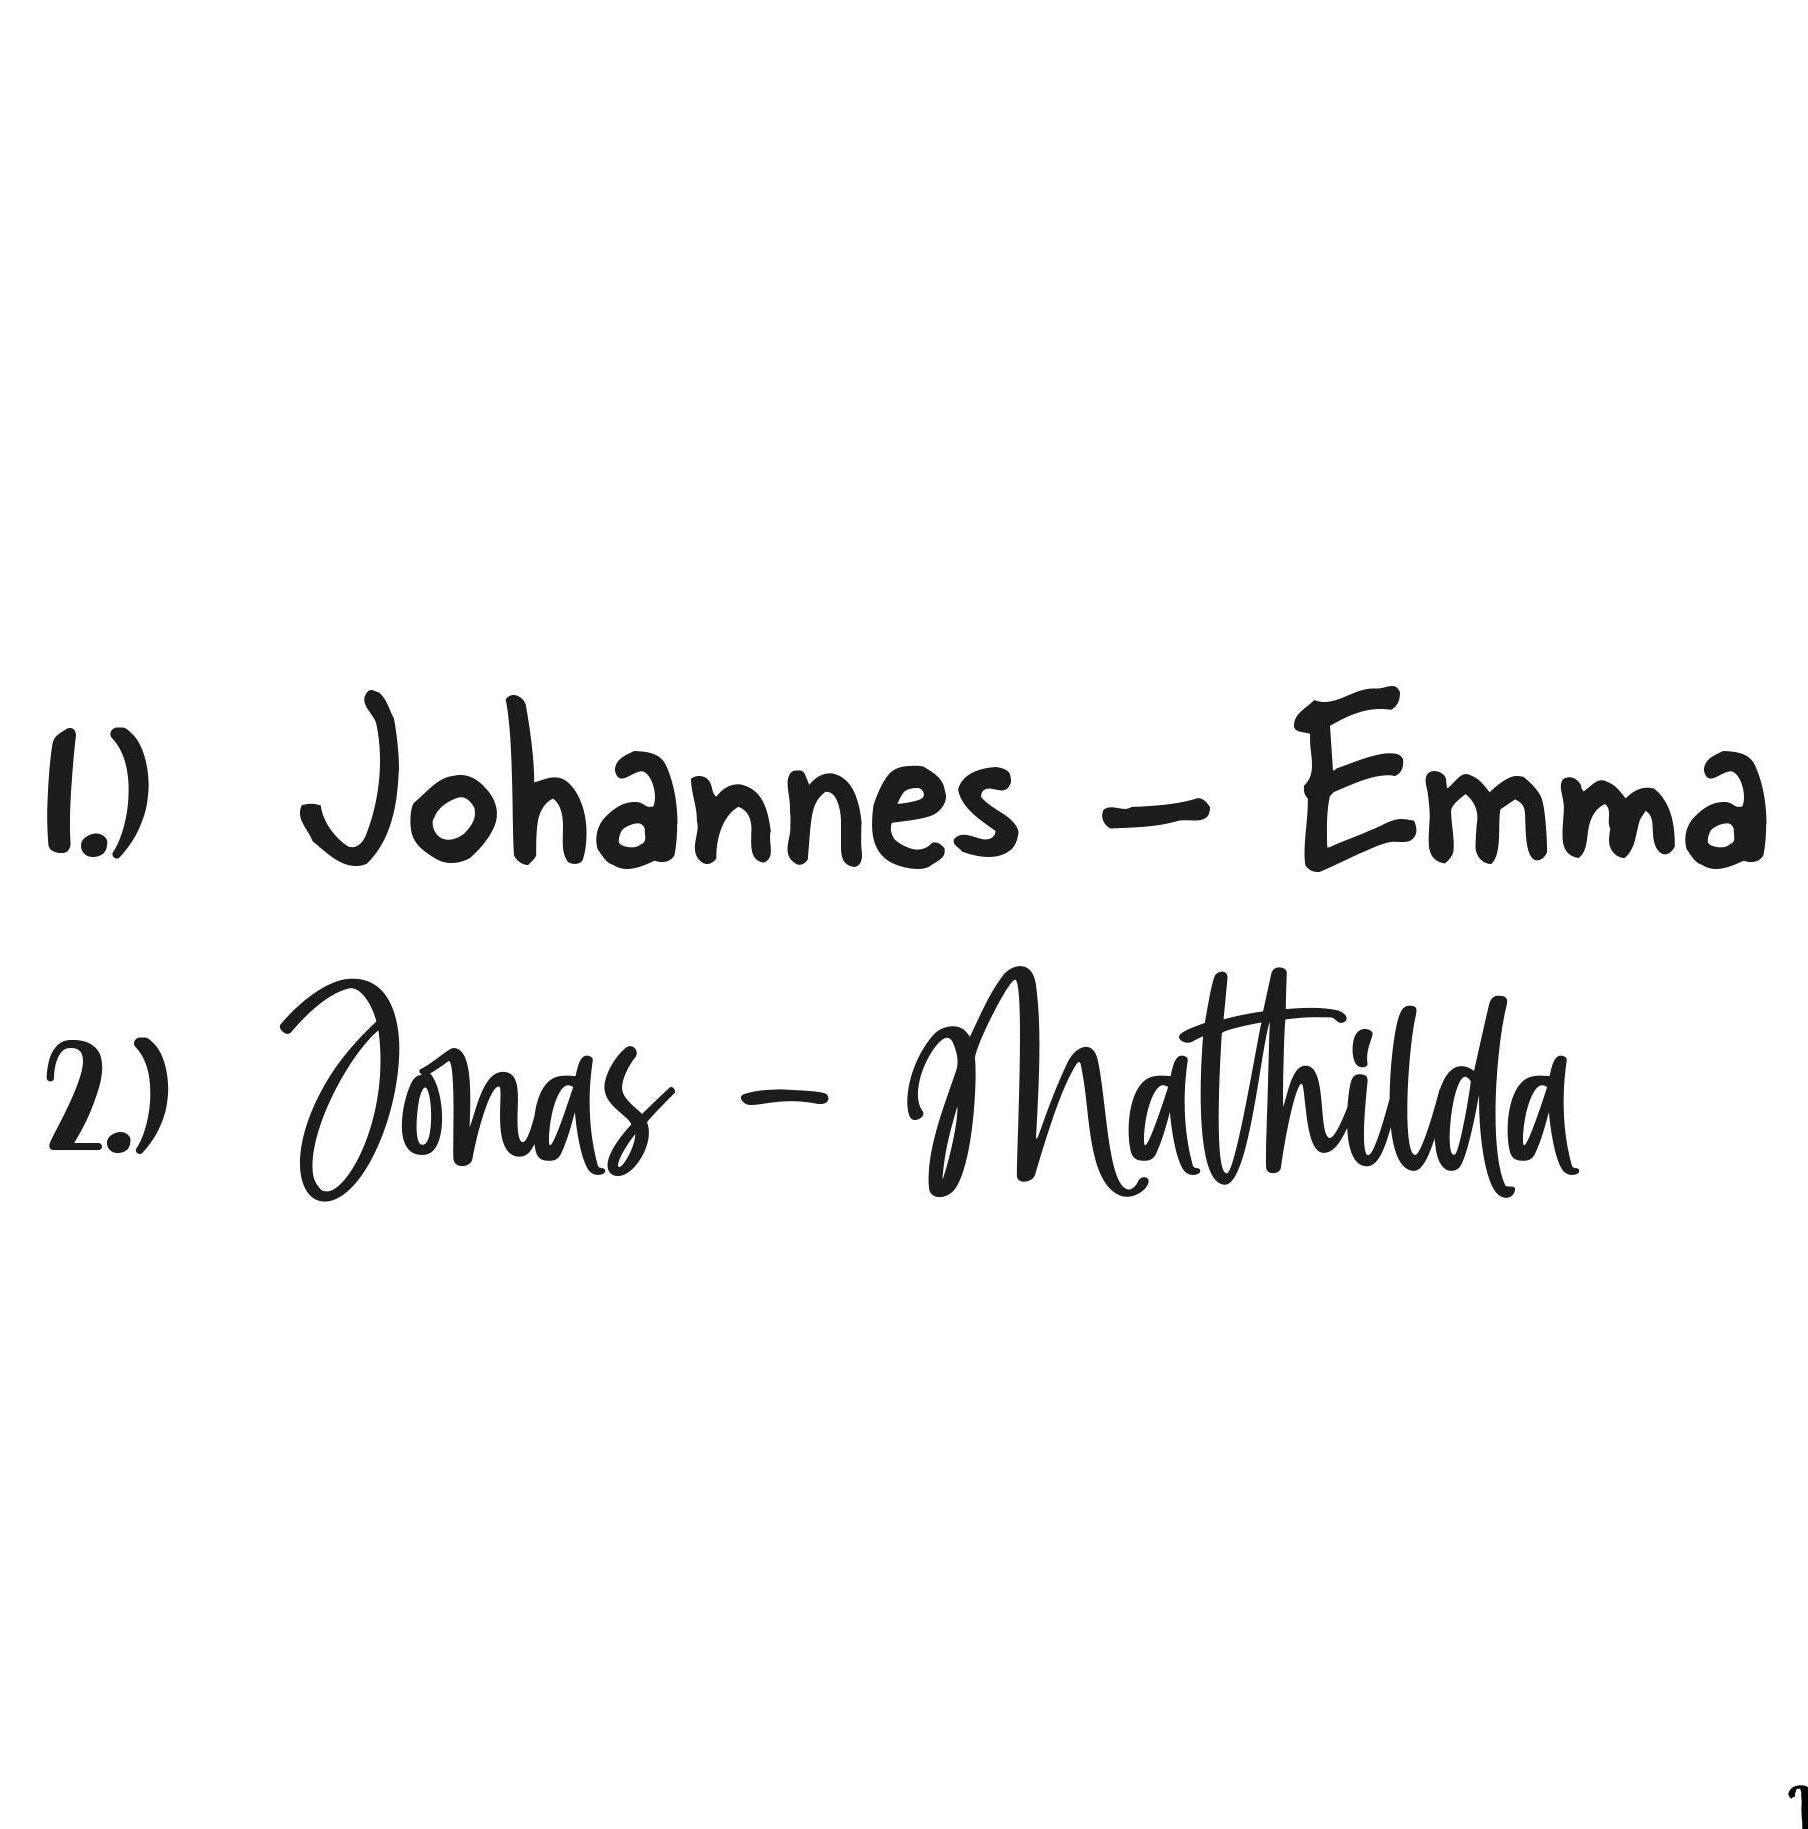 1.) Johannes – Emma
2.) Jonas – Mathilda